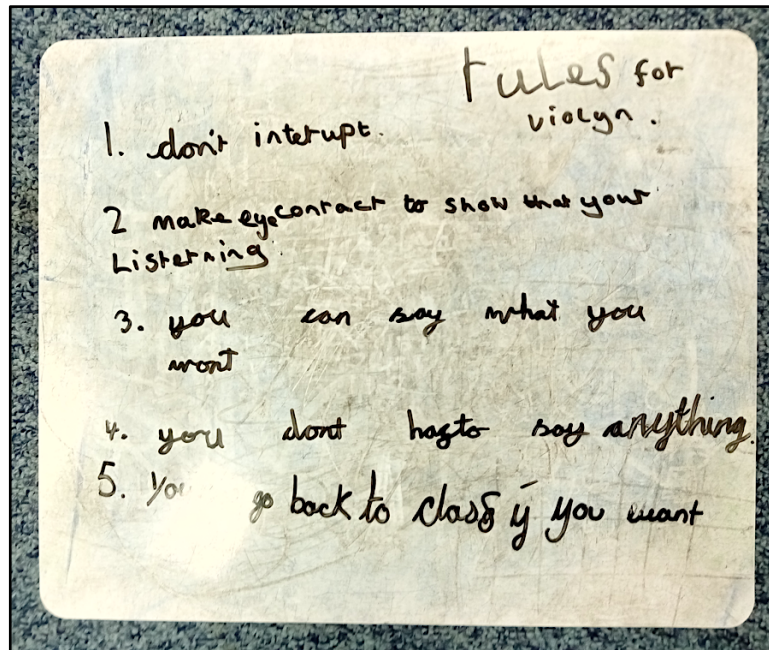 rules for
violyn.
1. don't interupt.
2 make eye contact to show that your
Listerning.
3. you can say what you
wont
4. you dont hagto say anything.
5. go back to class if you want